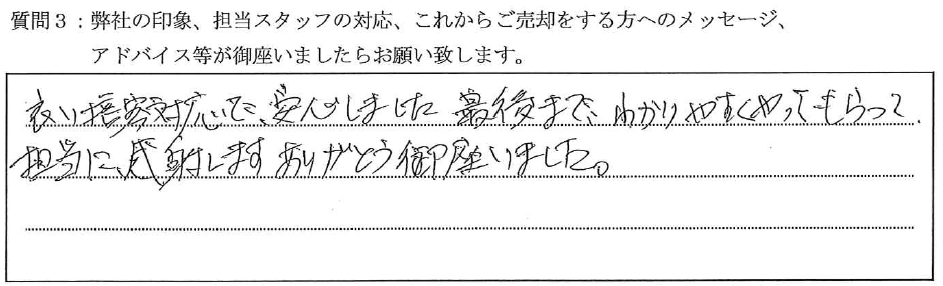 質問3：弊社の印象、担当スタッフの対応、これからご売却をする方へのメッセージ、
アドバイス等が御座いましたらお願い致します。
良い接客対応で、安心しました 最後まで、わかりやすくやってもらって
担当に、感謝します ありがとう御座いました。